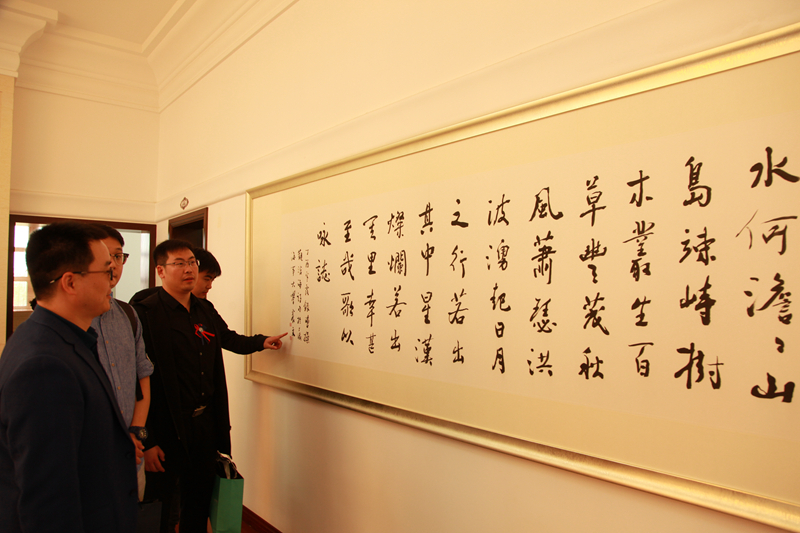 水何澹〻山
島竦峙樹
木叢生百
草豐茂秋
風蕭瑟洪
波湧起日月
之行若出
其中星漢
燦爛若出
其里幸甚
至哉歌以
咏誌